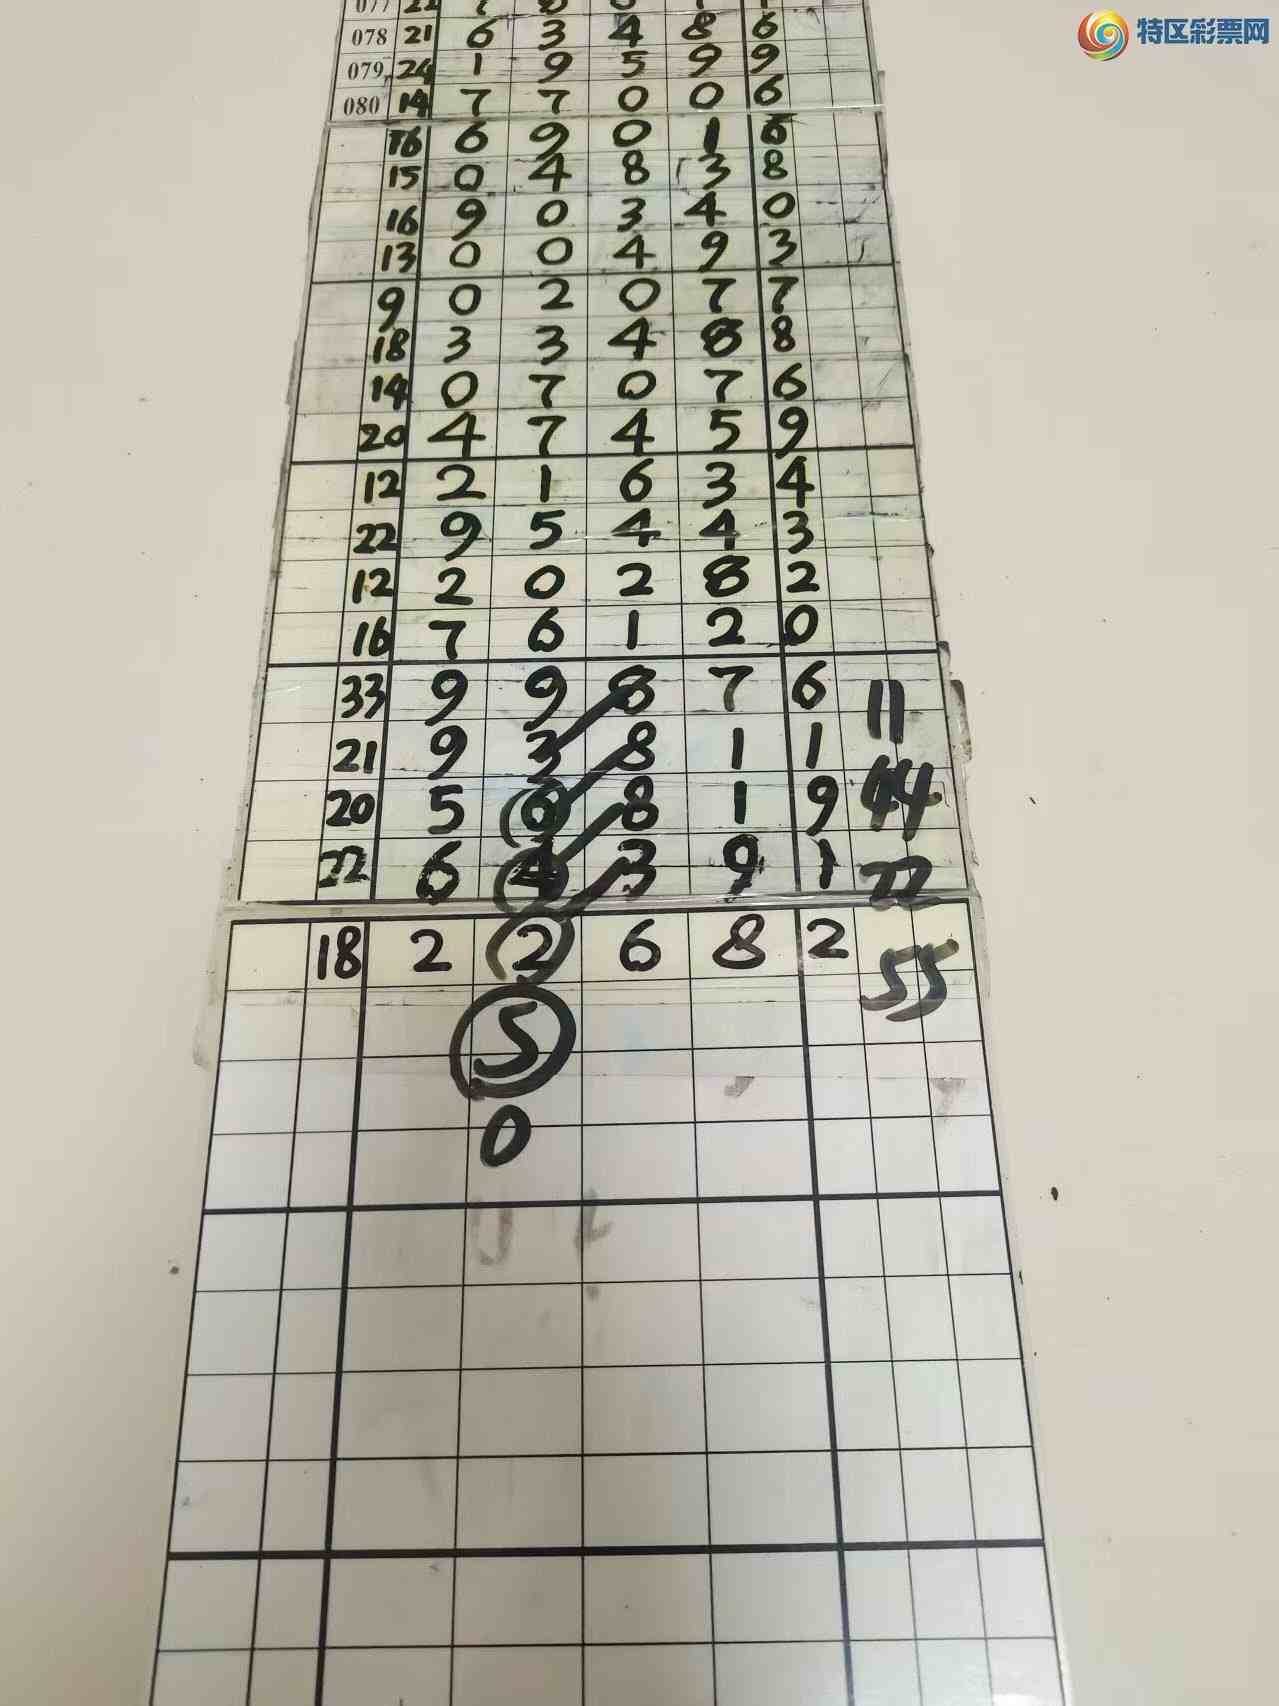 特区彩票网
077 22 7
078 21 6 3 4 8 6
079 24 1 9 5 9 9
080 14 7 7 0 0 6
16 6 9 0 1 6
15 0 4 8 3 8
16 9 0 3 4 0
13 0 0 4 9 3
9 0 2 0 7 7
18 3 3 4 8 8
14 0 7 0 7 6
20 4 7 4 5 9
12 2 1 6 3 4
22 9 5 4 4 3
12 2 0 2 8 2
16 7 6 1 2 0
33 9 9 8 7 6 11
21 9 3 8 1 1
20 5 6 8 1 9 44
22 6 4 3 9 1 22
18 2 2 6 8 2 55
5
0